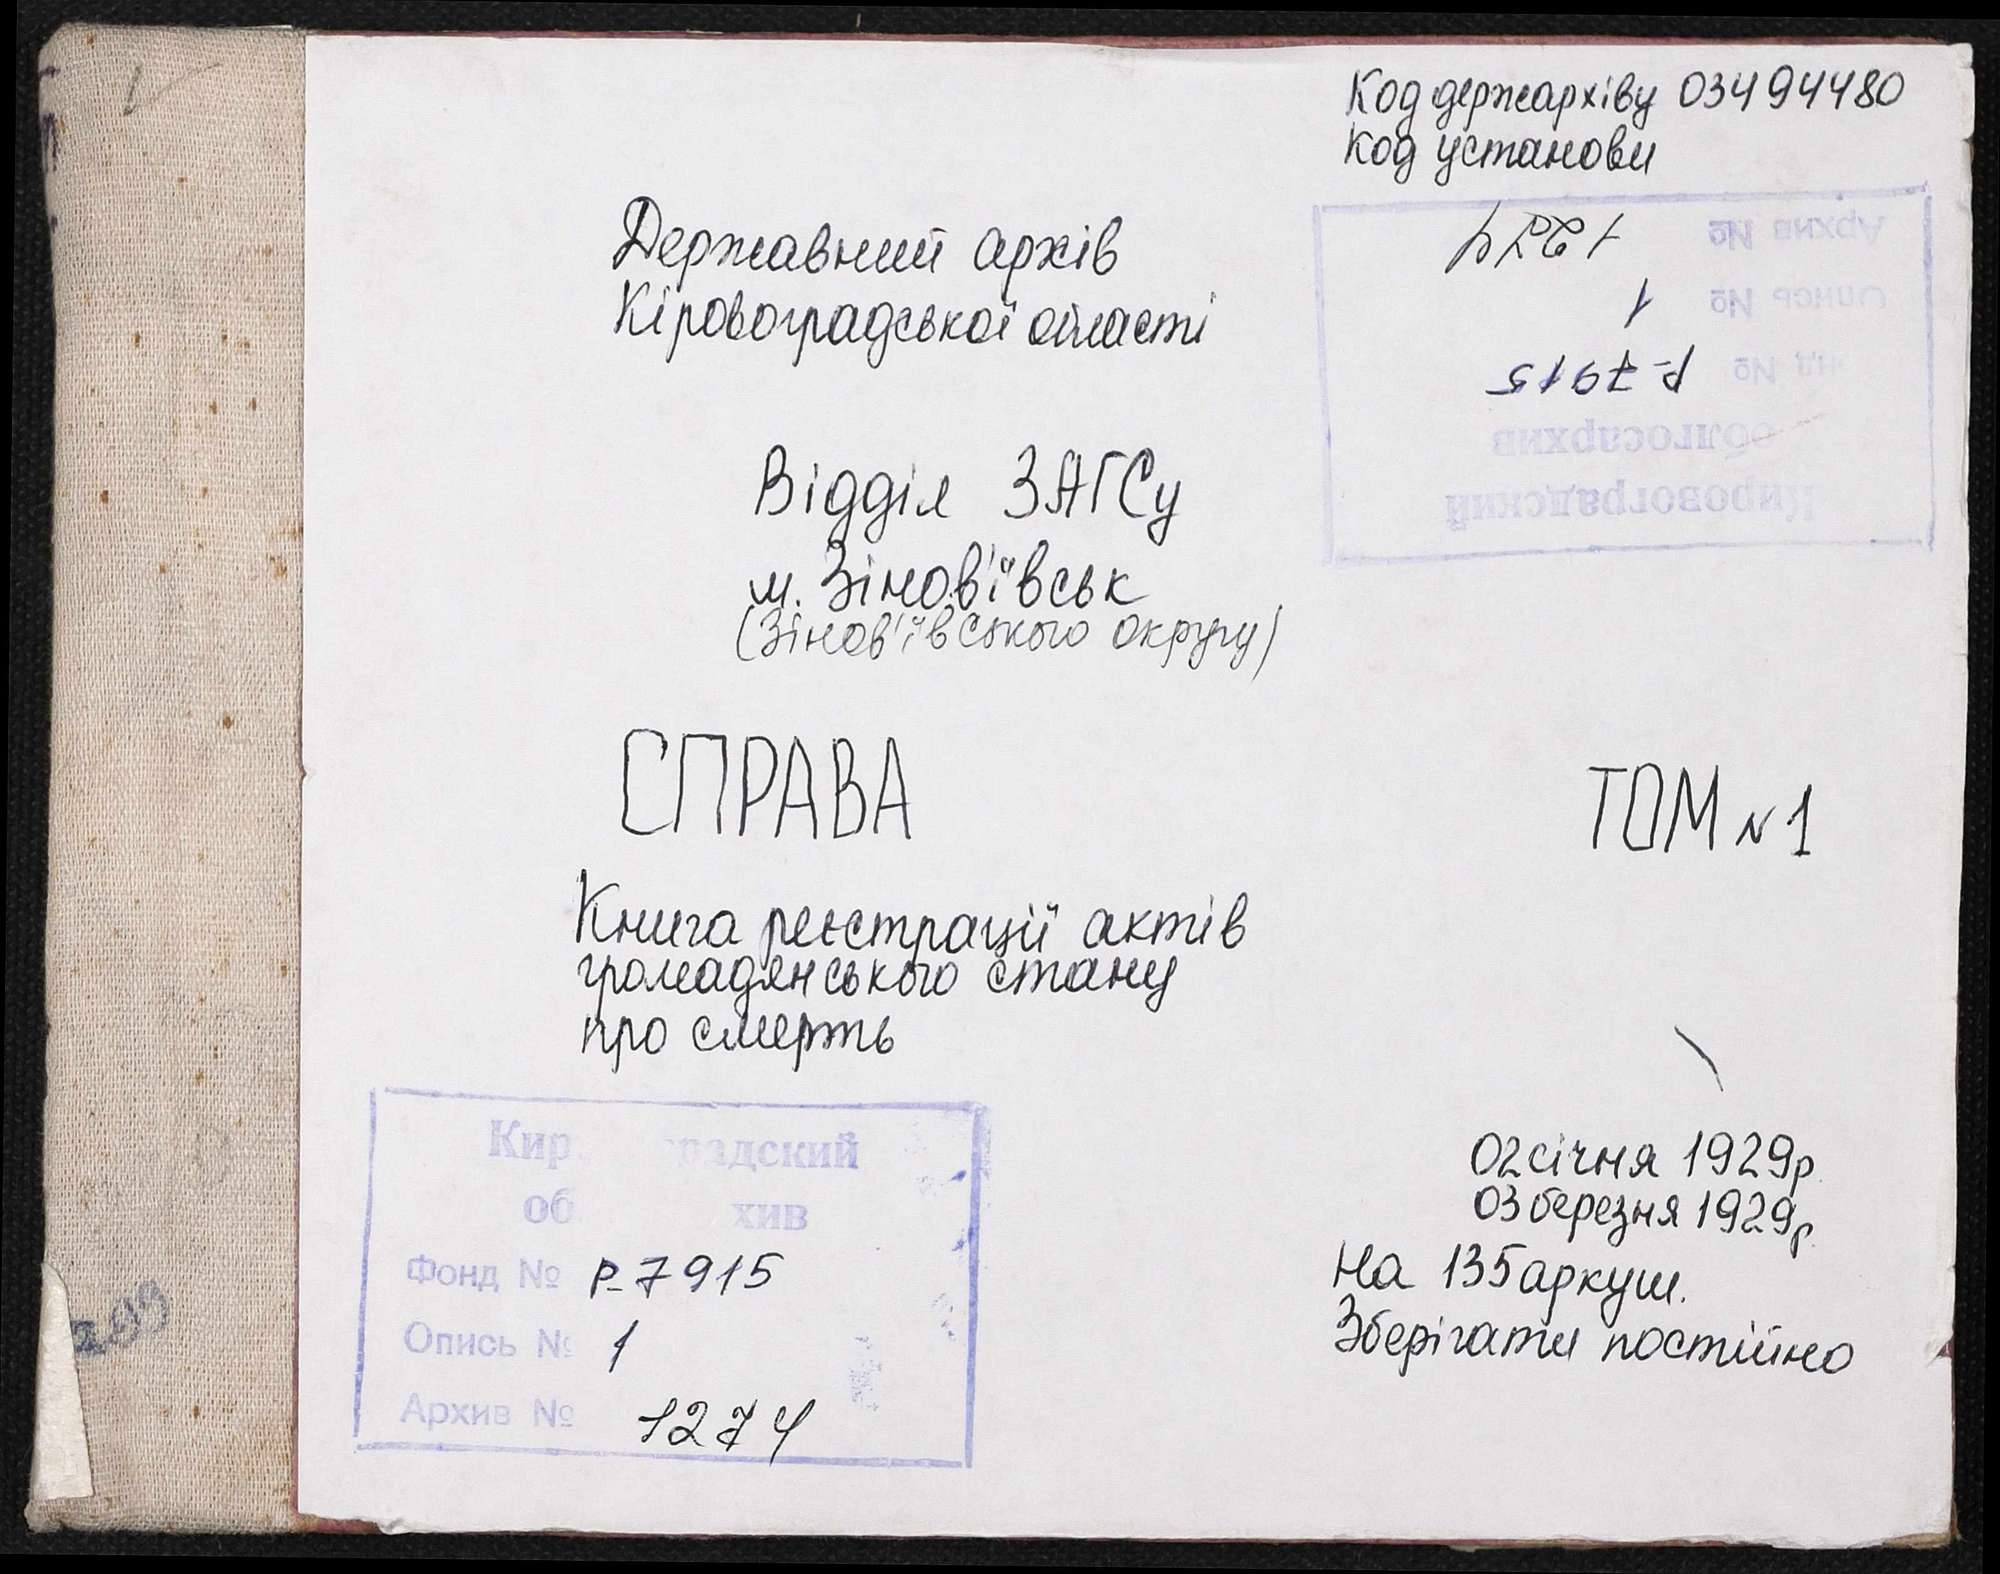 Код держархіву 03494480
Код установи
Державний архів
Кіровоградської області
Архив № 1274
Опись № 1
№ Р-7915
облгосархив
Кировоградский
Відділ ЗАГСу
м. Зінов'ївськ
(Зінов'ївського округу)
СПРАВА
ТОМ N 1
Книга реєстрації актів
громадянського стану
про смерть
02 січня 1929р.
03 березня 1929р.
На 135 аркуш.
Зберігати постійно
Кир градский
об хив
Фонд № Р-7915
Опись № 1
Архив № 1274